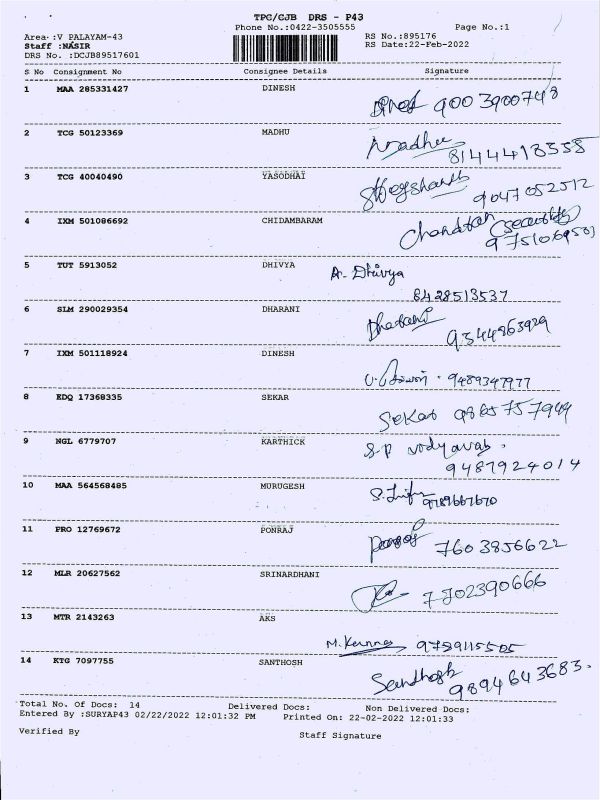 TPC/CJB DRS - P43
Phone No.:0422-3505555 Page No.:1
Area :V PALAYAM-43 RS No.:895176
Staff :NASIR RS Date:22-Feb-2022
DRS No. :DCJB89517601
S No Consignment No Consignee Details Signature
1 MAA 285331427 DINESH
Dines 9003900748
2 TCG 50123369 MADHU Madhu
8144418558
3 TCG 40040490 YASODHAI
9047052512
4 IXM 501086692 CHIDAMBARAM (Security)
5 TUT 5913052 DHIVYA A. Dhivya
8428513537
6 SLM 290029354 DHARANI Dharani
9344863929
7 IXM 501118924 DINESH
9489347977
8 EDQ 17368335 SEKAR
Sekar 9865757944
9 NGL 6779707 KARTHICK S.P
9487924014
10 MAA 564568485 MURUGESH
9789667670
11 PRO 12769672 PONRAJ
7603856622
12 MLR 20627562 SRINARDHANI
7702390666
13 MTR 2143263 AKS
M. 9789115505
14 KTG 7097755 SANTHOSH
Santhosh 9894643683.
Total No. Of Docs: 14 Delivered Docs: Non Delivered Docs:
Entered By :SURYAP43 02/22/2022 12:01:32 PM Printed On: 22-02-2022 12:01:33
Verified By Staff Signature